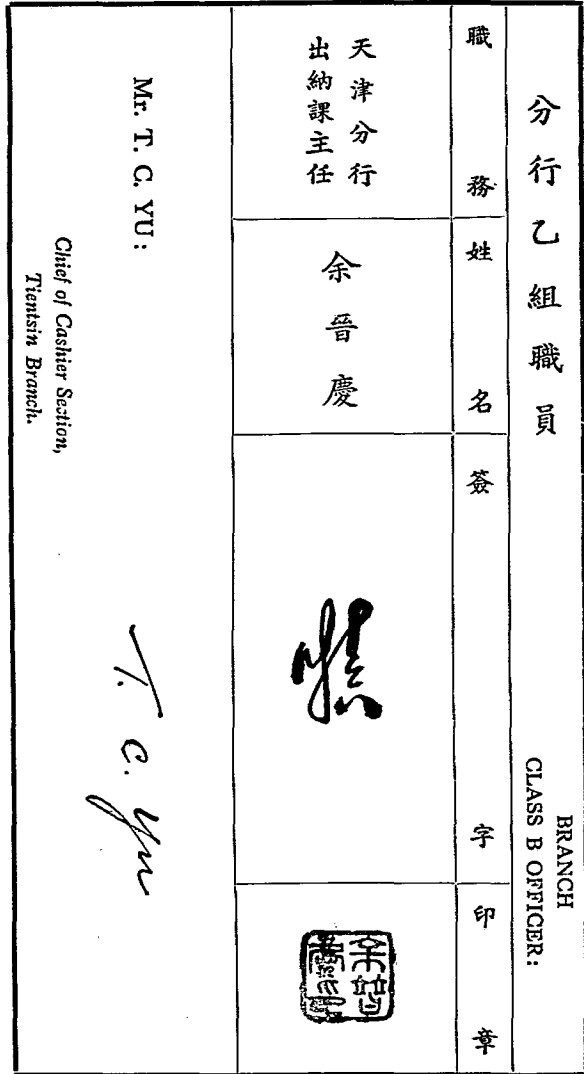 分行乙組職員
BRANCH
CLASS B OFFICER:
職務
姓名
簽字
印章
天津分行
出納課主任
余晉慶
Mr. T. C. YU:
Chief of Cashier Section,
Tientsin Branch.
T. C. Yu